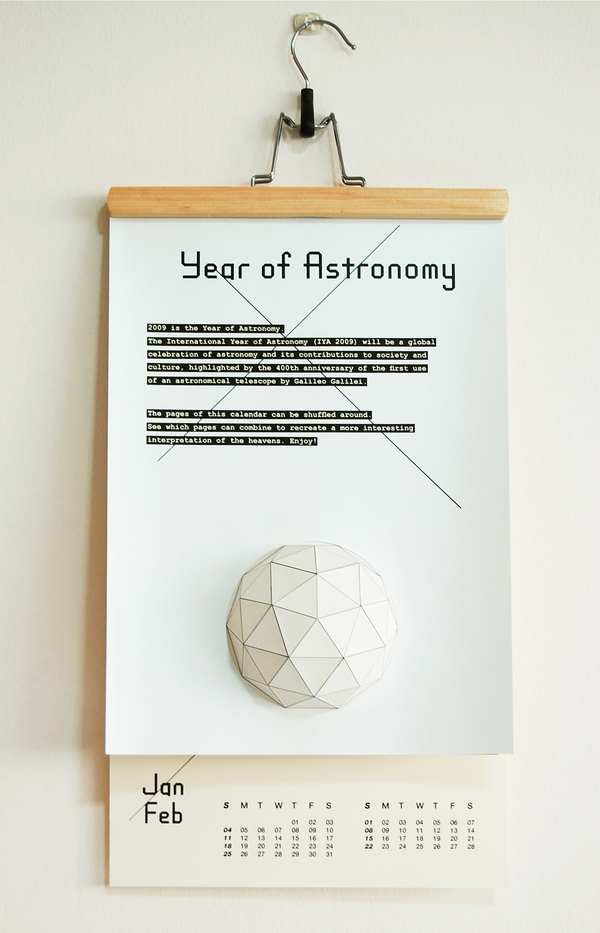 Year of Astronomy
2009 is the Year of Astronomy.
The International Year of Astronomy (IYA 2009) will be a global
celebration of astronomy and its contributions to society and
culture, highlighted by the 400th anniversary of the first use
of an astronomical telescope by Galileo Galilei.
The pages of this calendar can be shuffled around.
See which pages can combine to recreate a more interesting
interpretation of the heavens. Enjoy!
Jan
Feb
S M T W T F S
01 02 03
04 05 06 07 08 09 10
11 12 13 14 15 16 17
18 19 20 21 22 23 24
25 26 27 28 29 30 31
S M T W T F S
01 02 03 04 05 06 07
08 09 10 11 12 13 14
15 16 17 18 19 20 21
22 23 24 25 26 27 28